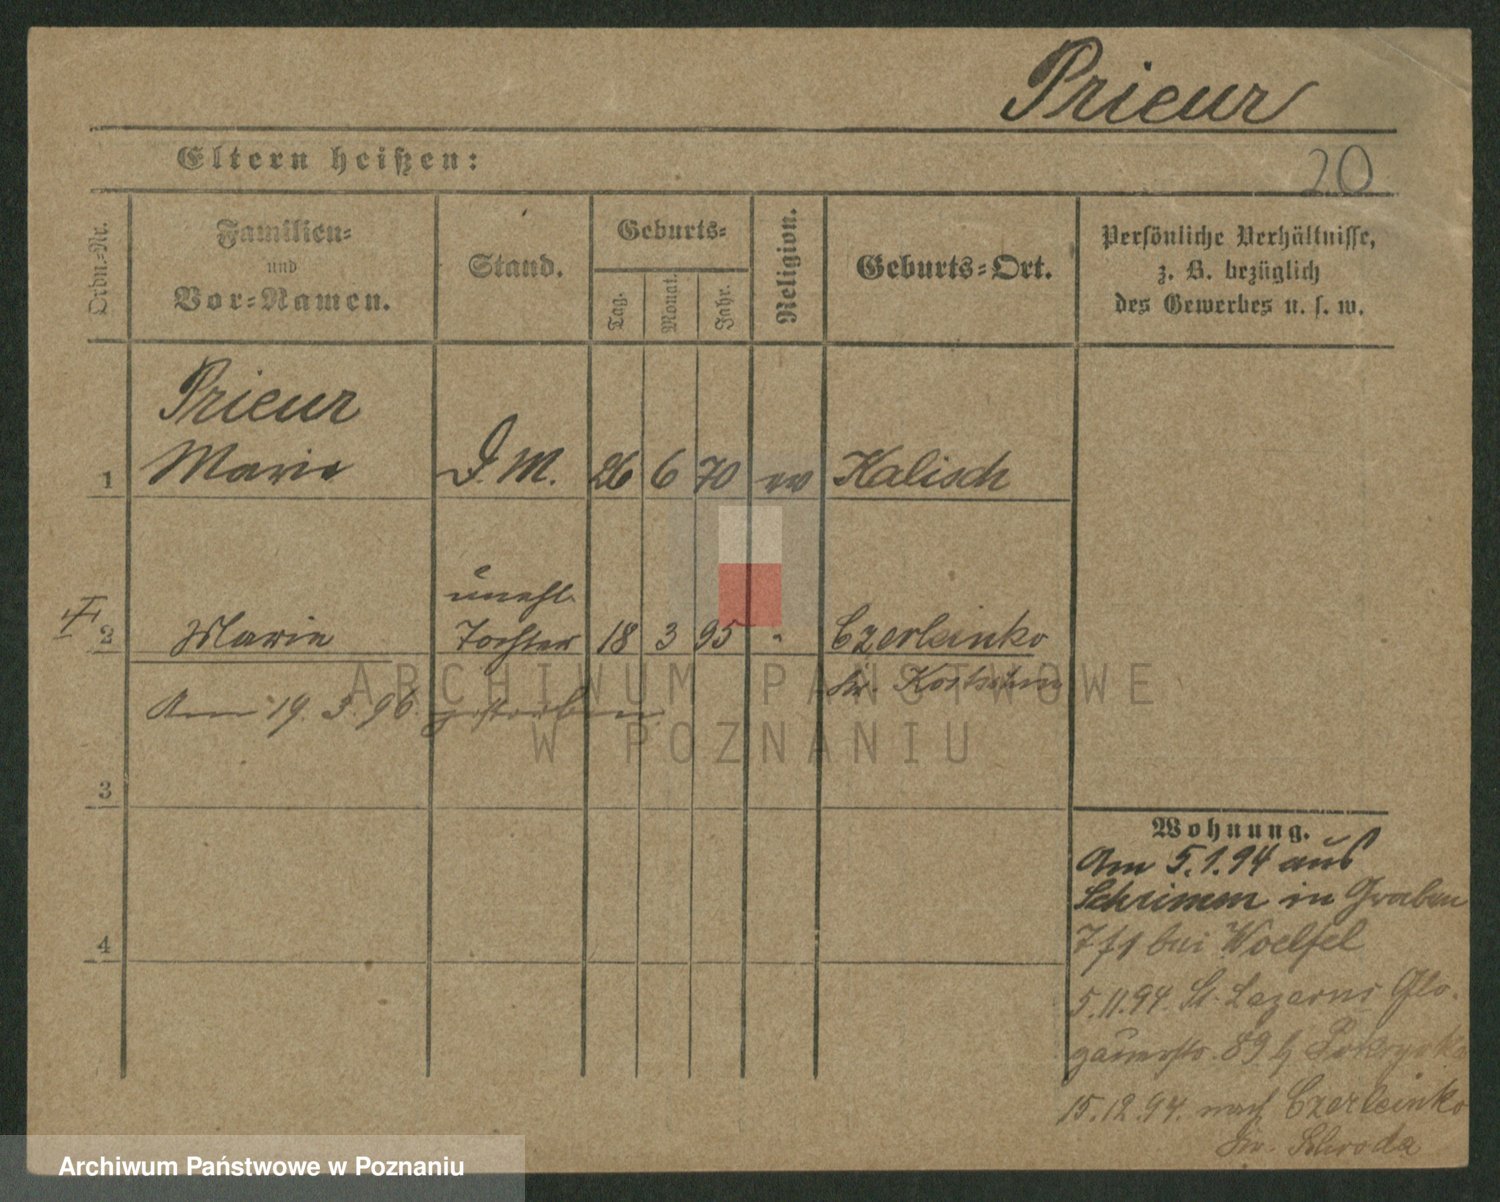 Prieur
Eltern heißen:
20
Ordn.-Nr.
Familien-
und
Vor-Namen.
Stand.
Geburts-
Tag.
Monat.
Jahr.
Religion.
Geburts-Ort.
Persönliche Verhältnisse,
z. B. bezüglich
des Gewerbes u. s. w.
Prieur
1 Marie D. M. 26 6 70 Kalisch
unehl.
2 Marie Tochter 18 3 95 " Czerleinko
Kr. Kostschin
Am 19. 3. 96. gestorben
3
4
Wohnung.
Am 5.1.94 aus
Schrimm in Graben
7 f1 bei Woelfel
5.11.94. St. Lazarus Glo-
gauerstr. 89 b
15.12.94. nach Czerleinko
Kr. Schroda
ARCHIWUM PAŃSTWOWE
W POZNANIU
Archiwum Państwowe w Poznaniu